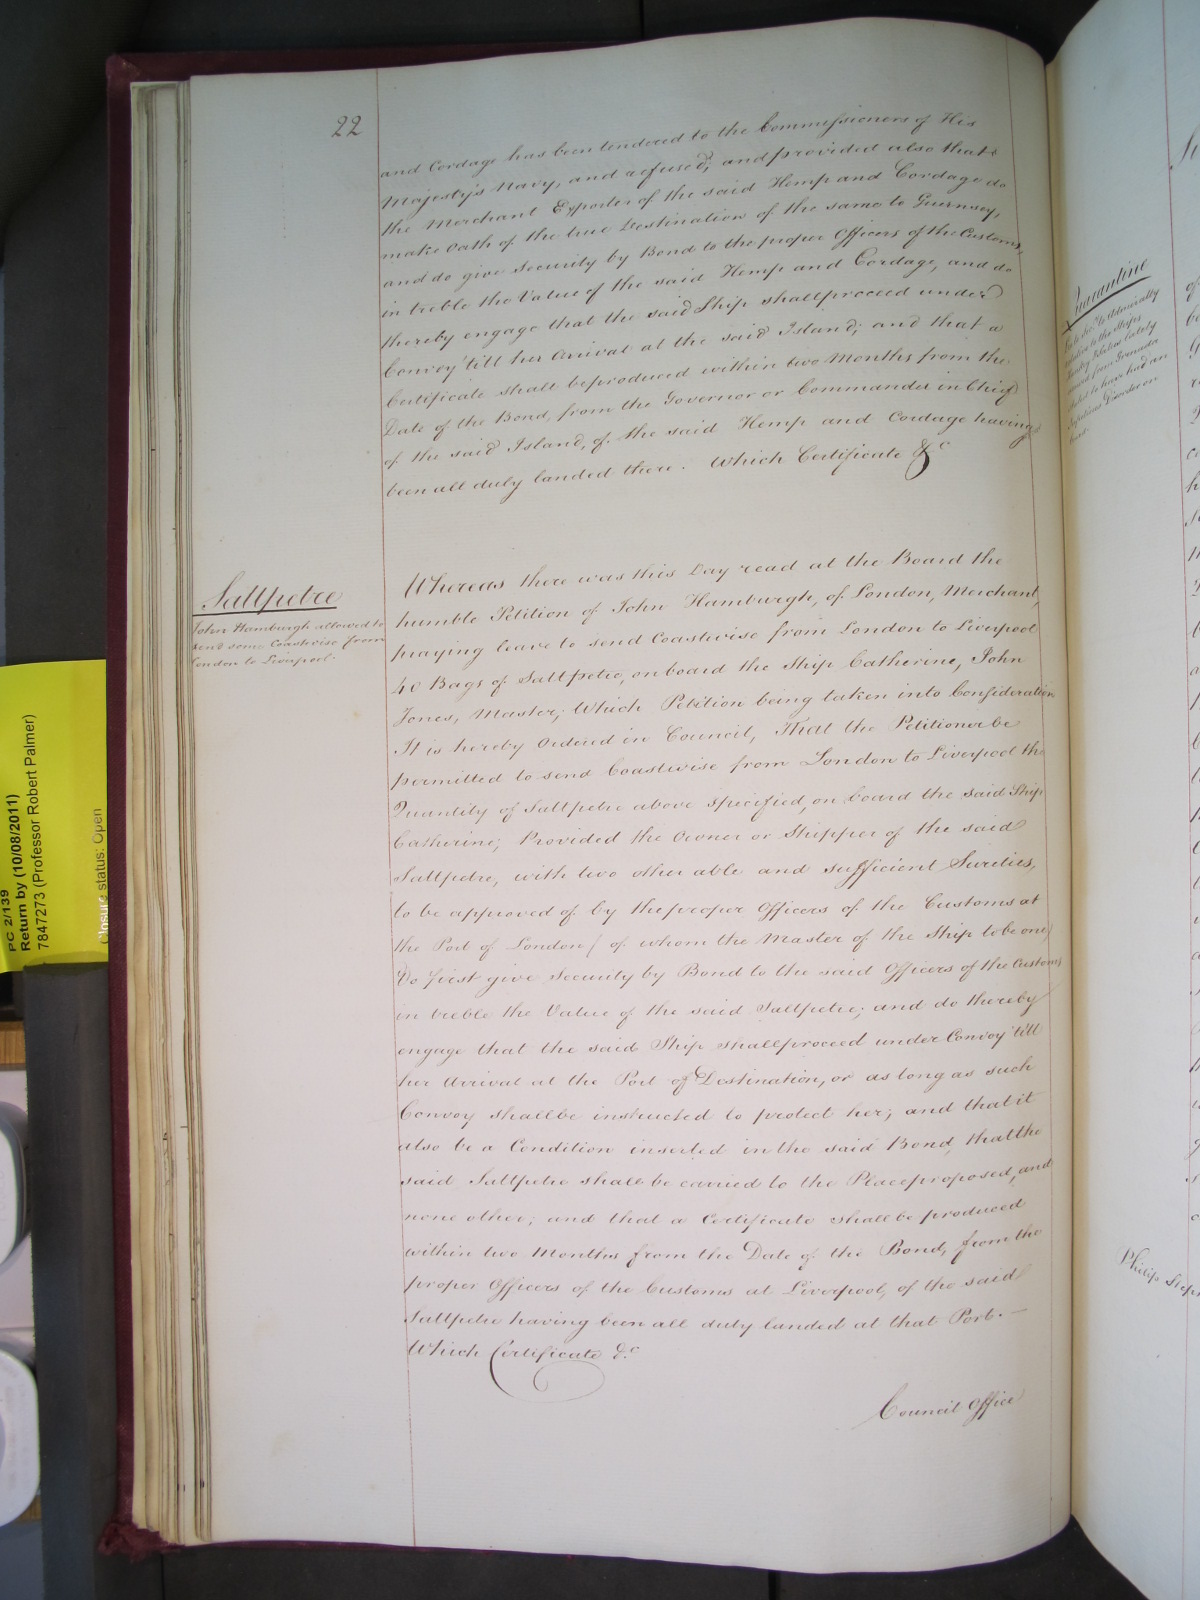 22
and Cordage has been tendered to the Commissioners of His
Majesty's Navy, and refused; and provided also that
the Merchant Exporter of the said Hemp and Cordage do
make Oath of the true Destination of the same to Guernsey,
and do give Security by Bond to the proper Officers of the Customs,
in treble the Value of the said Hemp and Cordage, and do
thereby engage that the said Ship shall proceed under
Convoy 'till her Arrival at the said Island; and that a
Certificate shall be produced within two Months from the
Date of the Bond, from the Governor or Commander in Chief
of the said Island, of the said Hemp and Cordage having
been all duly landed there. Which Certificate &c
Saltpetre
John Hamburgh allowed to
send some Coastwise from
London to Liverpool.
Whereas there was this Day read at the Board the
humble Petition of John Hamburgh, of London, Merchant,
praying leave to send Coastwise from London to Liverpool
40 Bags of Saltpetre, on board the Ship Catherine, John
Jones, Master; Which Petition being taken into Consideration
It is hereby Ordered in Council, That the Petitioner be
permitted to send Coastwise from London to Liverpool the
Quantity of Saltpetre above specified, on board the said Ship
Catherine; Provided the Owner or Shipper of the said
Saltpetre, with two other able and sufficient Sureties,
to be approved of by the proper Officers of the Customs at
the Port of London (of whom the Master of the Ship to be one)
Do first give Security by Bond to the said Officers of the Customs
in treble the Value of the said Saltpetre; and do thereby
engage that the said Ship shall proceed under Convoy 'till
her Arrival at the Port of Destination, or as long as such
Convoy shall be instructed to protect her; and that it
also be a Condition inserted in the said Bond, that the
said Saltpetre shall be carried to the Place proposed, and
none other; and that a Certificate shall be produced
within two Months from the Date of the Bond, from the
proper Officers of the Customs at Liverpool, of the said
Saltpetre having been all duly landed at that Port. —
Which Certificate &c
Council Office
Quarantine
Philip Steph
PC 2/139
Return by (10/08/2011)
7847273 (Professor Robert Palmer)
Closure status: Open